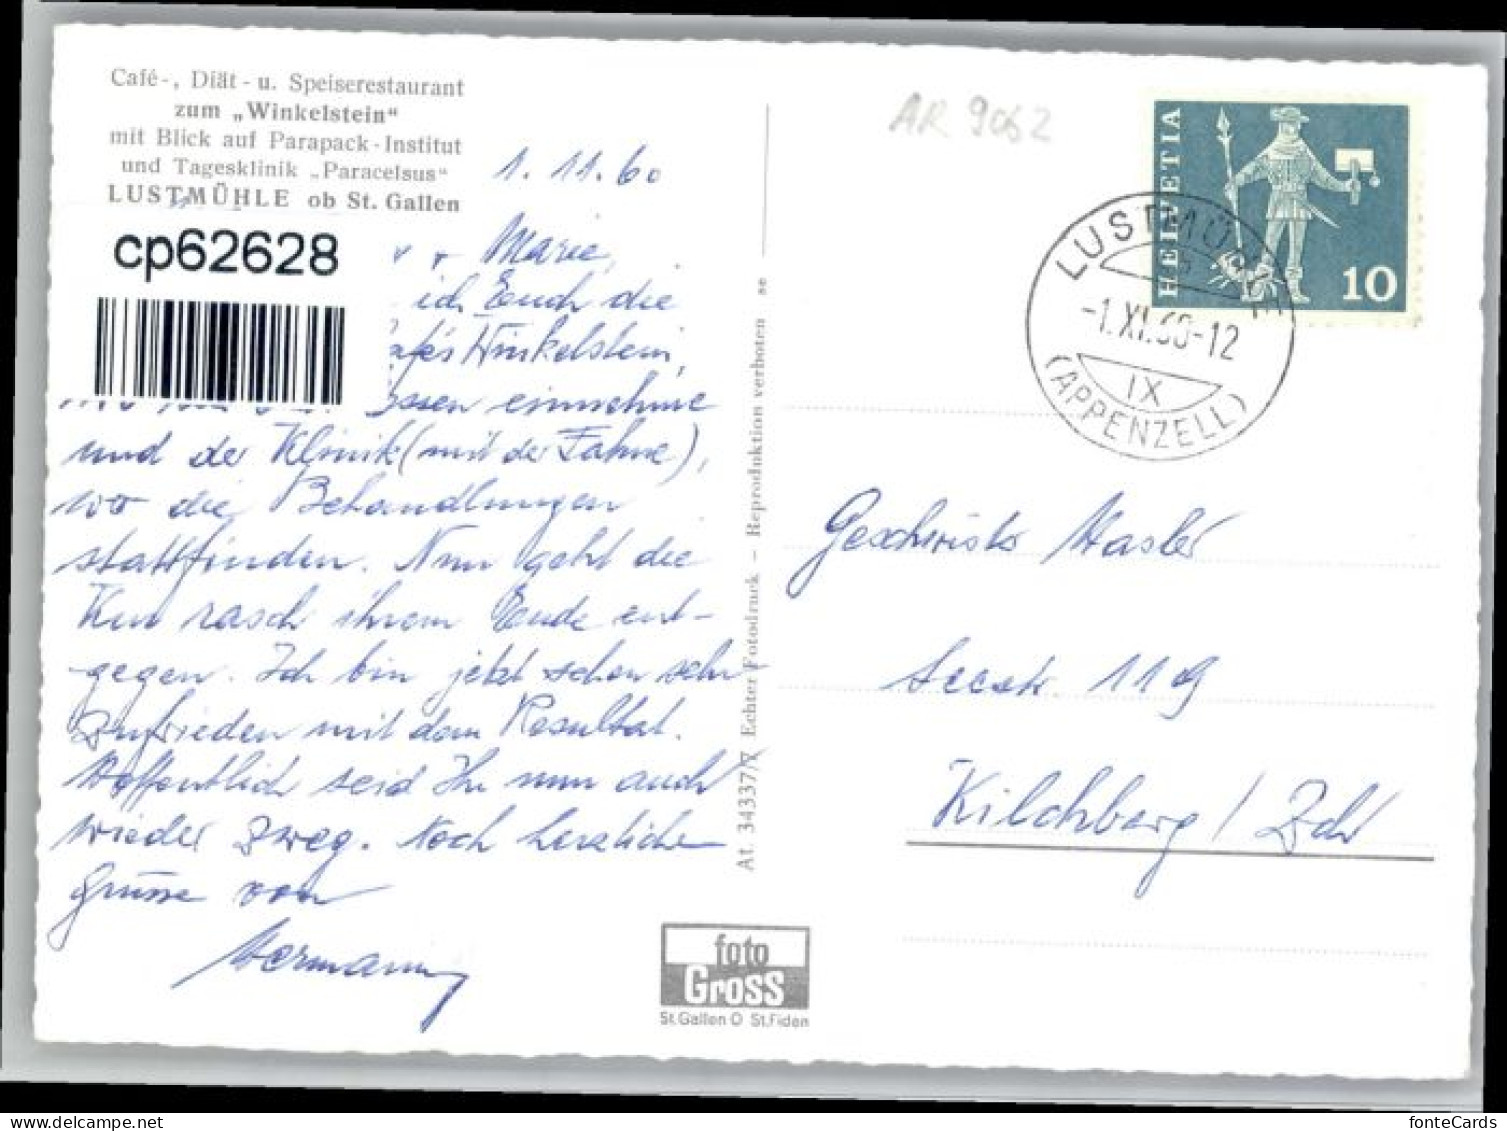 Café-, Diät- u. Speiserestaurant
zum „Winkelstein“
mit Blick auf Parapack-Institut
und Tagesklinik „Paracelsus“
LUSTMÜHLE ob St. Gallen
cp62628
1. 11. 60
Marie,
ich Euch die
Winkelstein,
einnehme
und der Klinik (mit der Fahne),
wo die Behandlungen
stattfinden. Nun geht die
Kur rasch ihrem Ende ent-
gegen. Ich bin jetzt schon sehr
zufrieden mit dem Resultat.
Hoffentlich seid Ihr nun auch
wieder zweg. Noch herzliche
Grüsse von
Hermann
At. 34337/7 Echter Fotodruck – Reproduktion verboten se
foto
Gross
St.Gallen O St.Fiden
AR 9062
HELVETIA
10
LUSTMÜHLE
-1.XI.60-12
IX
(APPENZELL)
Geschwister Hasler
Seestr. 119
Kilchberg / Zch
delcampe.net
fonteCards